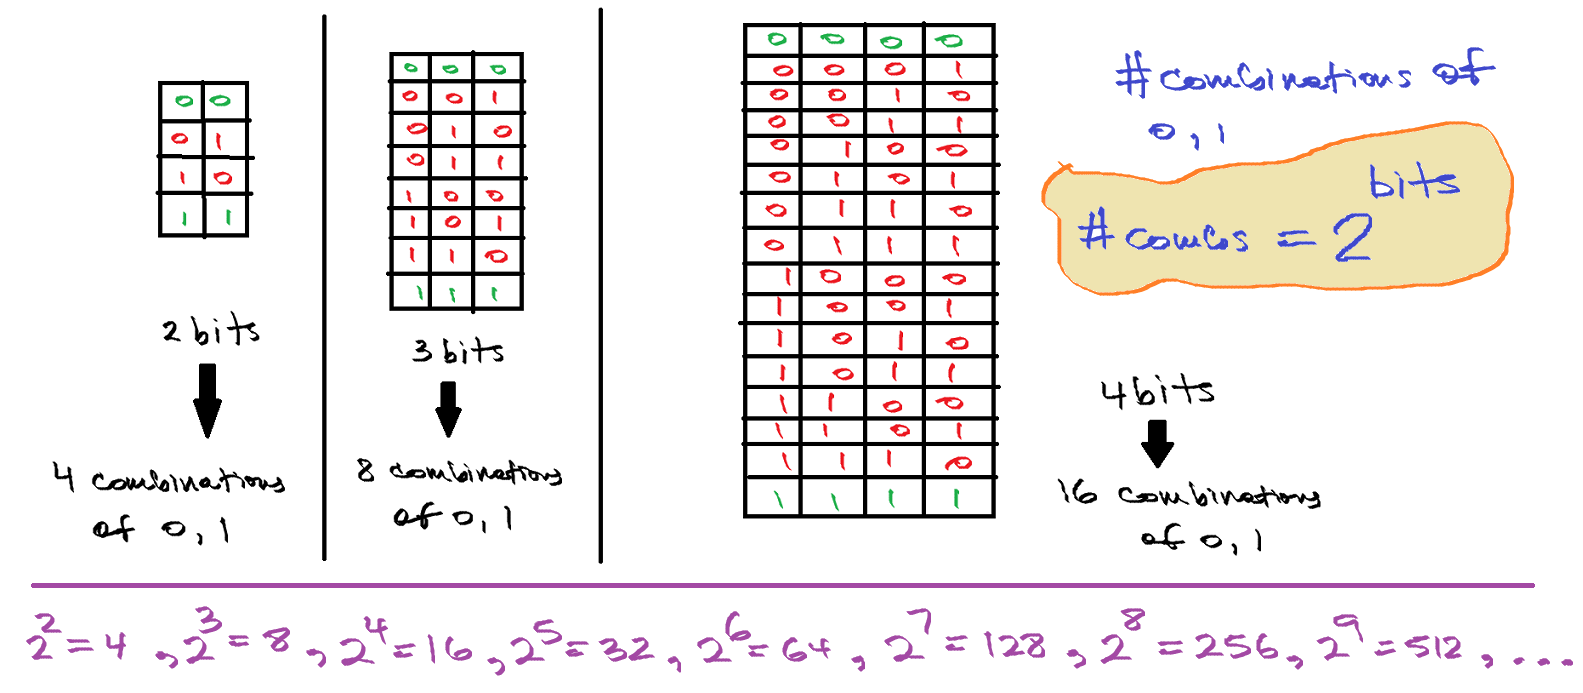 0 0
0 1
1 0
1 1
2 bits
4 combinations
of 0, 1
0 0 0
0 0 1
0 1 0
0 1 1
1 0 0
1 0 1
1 1 0
1 1 1
3 bits
8 combinations
of 0, 1
0 0 0 0
0 0 0 1
0 0 1 0
0 0 1 1
0 1 0 0
0 1 0 1
0 1 1 0
0 1 1 1
1 0 0 0
1 0 0 1
1 0 1 0
1 0 1 1
1 1 0 0
1 1 0 1
1 1 1 0
1 1 1 1
#combinations of
0, 1
# combs = 2^bits
4 bits
16 combinations
of 0, 1
2² = 4, 2³ = 8, 2⁴ = 16, 2⁵ = 32, 2⁶ = 64, 2⁷ = 128, 2⁸ = 256, 2⁹ = 512, ...